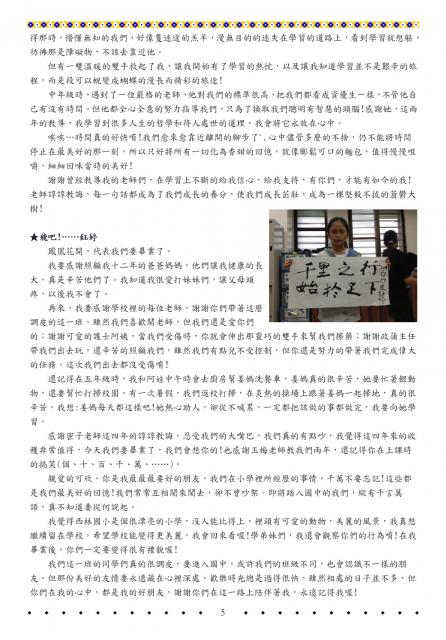 得那時，懵懂無知的我們，好像隻迷途的羔羊，漫無目的的迷失在學習的道路上，看到學習就想躲，
彷彿那是障礙物，不該去靠近他。
但有一雙溫暖的雙手救起了我，讓我開始有了學習的熱忱，以及讓我知道學習並不是艱辛的旅
程，而是段可以蛻變成蝴蝶的漫長而精彩的旅途！
中年級時，遇到了一位嚴格的老師，他對我們的標準很高，把我們都看成資優生一樣，不管他自
己有沒有時間，但他都全心全意的努力指導我們，只為了換取我們聰明有智慧的頭腦！感謝她，這兩
年的教導，我學習到很多人生的哲學和待人處世的道理，我會將它永放在心中。
唉唉…時間真的好快唷！我們愈來愈靠近離開的腳步了，心中儘管多麼的不捨，仍不能將時間
停止在最美好的那一刻，所以只好將所有一切化為香甜的回憶，就像膨鬆可口的麵包，值得慢慢咀
嚼，細細回味當時的美好！
謝謝曾經教導我的老師們，在學習上不斷的給我信心，給我支持，有你們，才能有如今的我！
老師諄諄教誨，每一句話都成為了我們成長的養分，使我們成長茁壯，成為一棵堅毅不拔的蒼鬱大
樹！
★飛吧！……鈺婷
鳳凰花開，代表我們要畢業了。
我要感謝照顧我十二年的爸爸媽媽，他們讓我健康的長
大，真是辛苦他們了。我知道我很愛打妹妹們，讓父母頭
疼，以後我不會了。
再來，我要感謝學校裡的每位老師，謝謝你們帶著這麼
調皮的這一班，雖然我們喜歡鬧老師，但我們還是愛你們
的；謝謝可愛的護士阿姨，當我們受傷時，你就會伸出那靈巧的雙手來幫我們擦藥；謝謝政蒲主任
帶我們出去玩，還辛苦的照顧我們，雖然我們有點兒不受控制，但你還是努力的帶著我們完成偉大
的任務，這次我們出去都沒受傷唷！
還記得在五年級時，我和阿娃中午時會去廚房幫姜媽洗餐車，姜媽真的很辛苦，她要忙著餵動
物，還要幫忙打掃校園，有一次暑假，我們返校打掃，在炎熱的操場上跟著姜媽一起掃地，真的很
辛苦，我想：姜媽每天都這樣吧！她熱心助人，卻從不喊累，一定都把該做的事都做完，我要向她學
習。
感謝害子老師這四年的諄諄教誨，忍受我們的大嘴巴，我們真的有點吵，我覺得這四年來的收
穫非常值得，今天我們要畢業了，我們會想你的！也感謝玉梅老師教我們兩年，還記得你在上課時
的搞笑(個、十、百、千、萬、……)。
親愛的可欣，你是我最最最要好的朋友，我們在小學裡所經歷的事情，千萬不要忘記！這些都
是我們最美好的回憶！我們常常互相鬧來鬧去，卻不曾吵架。即將踏入國中的我們，縱有千言萬
語，真不知道要從何說起。
我覺得西林國小是個很漂亮的小學，沒人能比得上，裡頭有可愛的動物，美麗的風景，我真想
繼續留在學校，希望學校能變得更美麗，我會回來看喔！學弟妹們，我還會觀察你們的行為唷！在我
畢業後，你們一定要變得很有禮貌喔！
我們這一班的同學們真的很調皮，要進入國中，或許我們的班級不同，也會認識不一樣的朋
友，但那份美好的友情要永遠藏在心裡深處。歡樂時光總是過得很快，雖然相處的日子並不多，但
你們在我的心中，都是我的好朋友，謝謝你們在這一路上陪伴著我，永遠記得我喔！
千里之行
始於足下
5